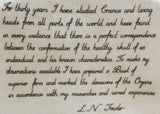 For thirty years I have studied Crania and living
heads from all parts of the world, and have found
in every instance that there is a perfect correspondence
between the conformation of the healthy skull of
an individual and his known characteristics. To make my
observations available I have prepared a Bust of
superior form and marked the divisions of the Organs
in accordance with my researches and varied experience.
L. N. Fowler